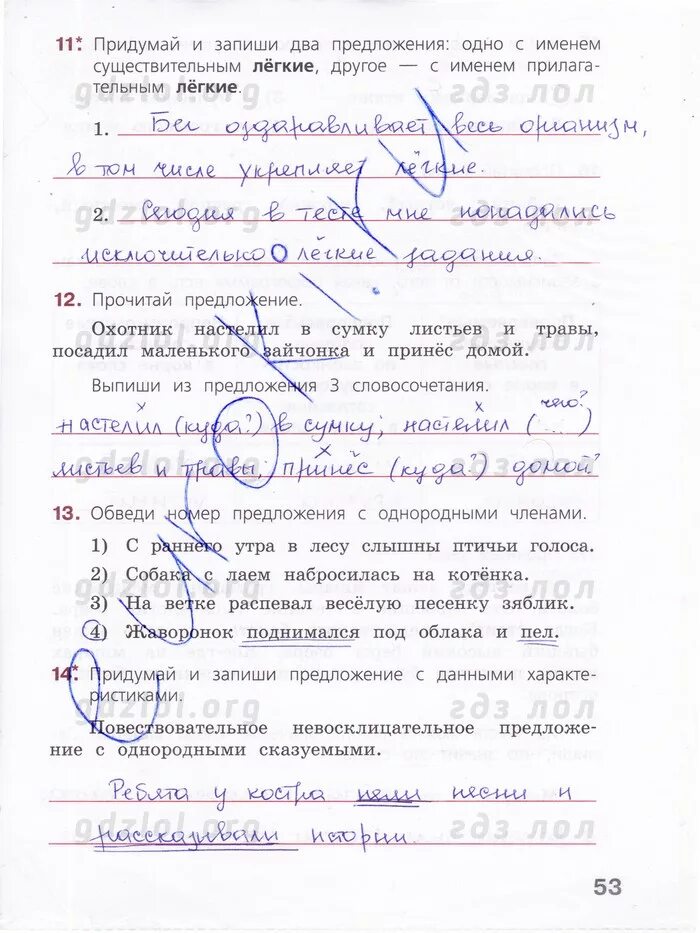 11*. Придумай и запиши два предложения: одно с именем
существительным лёгкие, другое — с именем прилага-
тельным лёгкие.
1. Бег оздоравливает весь организм,
в том числе укрепляет лёгкие.
2. Сегодня в тесте мне попадались
исключительно лёгкие задания.
12. Прочитай предложение.
Охотник настелил в сумку листьев и травы,
посадил маленького зайчонка и принёс домой.
Выпиши из предложения 3 словосочетания.
чего?
настелил (куда?) в сумку; настелил (...)
листьев и травы; принёс (куда?) домой?
13. Обведи номер предложения с однородными членами.
1) С раннего утра в лесу слышны птичьи голоса.
2) Собака с лаем набросилась на котёнка.
3) На ветке распевал весёлую песенку зяблик.
4) Жаворонок поднимался под облака и пел.
14*. Придумай и запиши предложение с данными характе-
ристиками.
Повествовательное невосклицательное предложе-
ние с однородными сказуемыми.
Ребята у костра пели песни и
рассказывали истории.
53
gdzlol.org гдз лол
gdzlol.org гдз лол
gdzlol.org гдз лол
gdzlol.org гдз лол
gdzlol.org гдз лол
gdzlol.org гдз лол
gdzlol.org гдз лол
euroki.ru